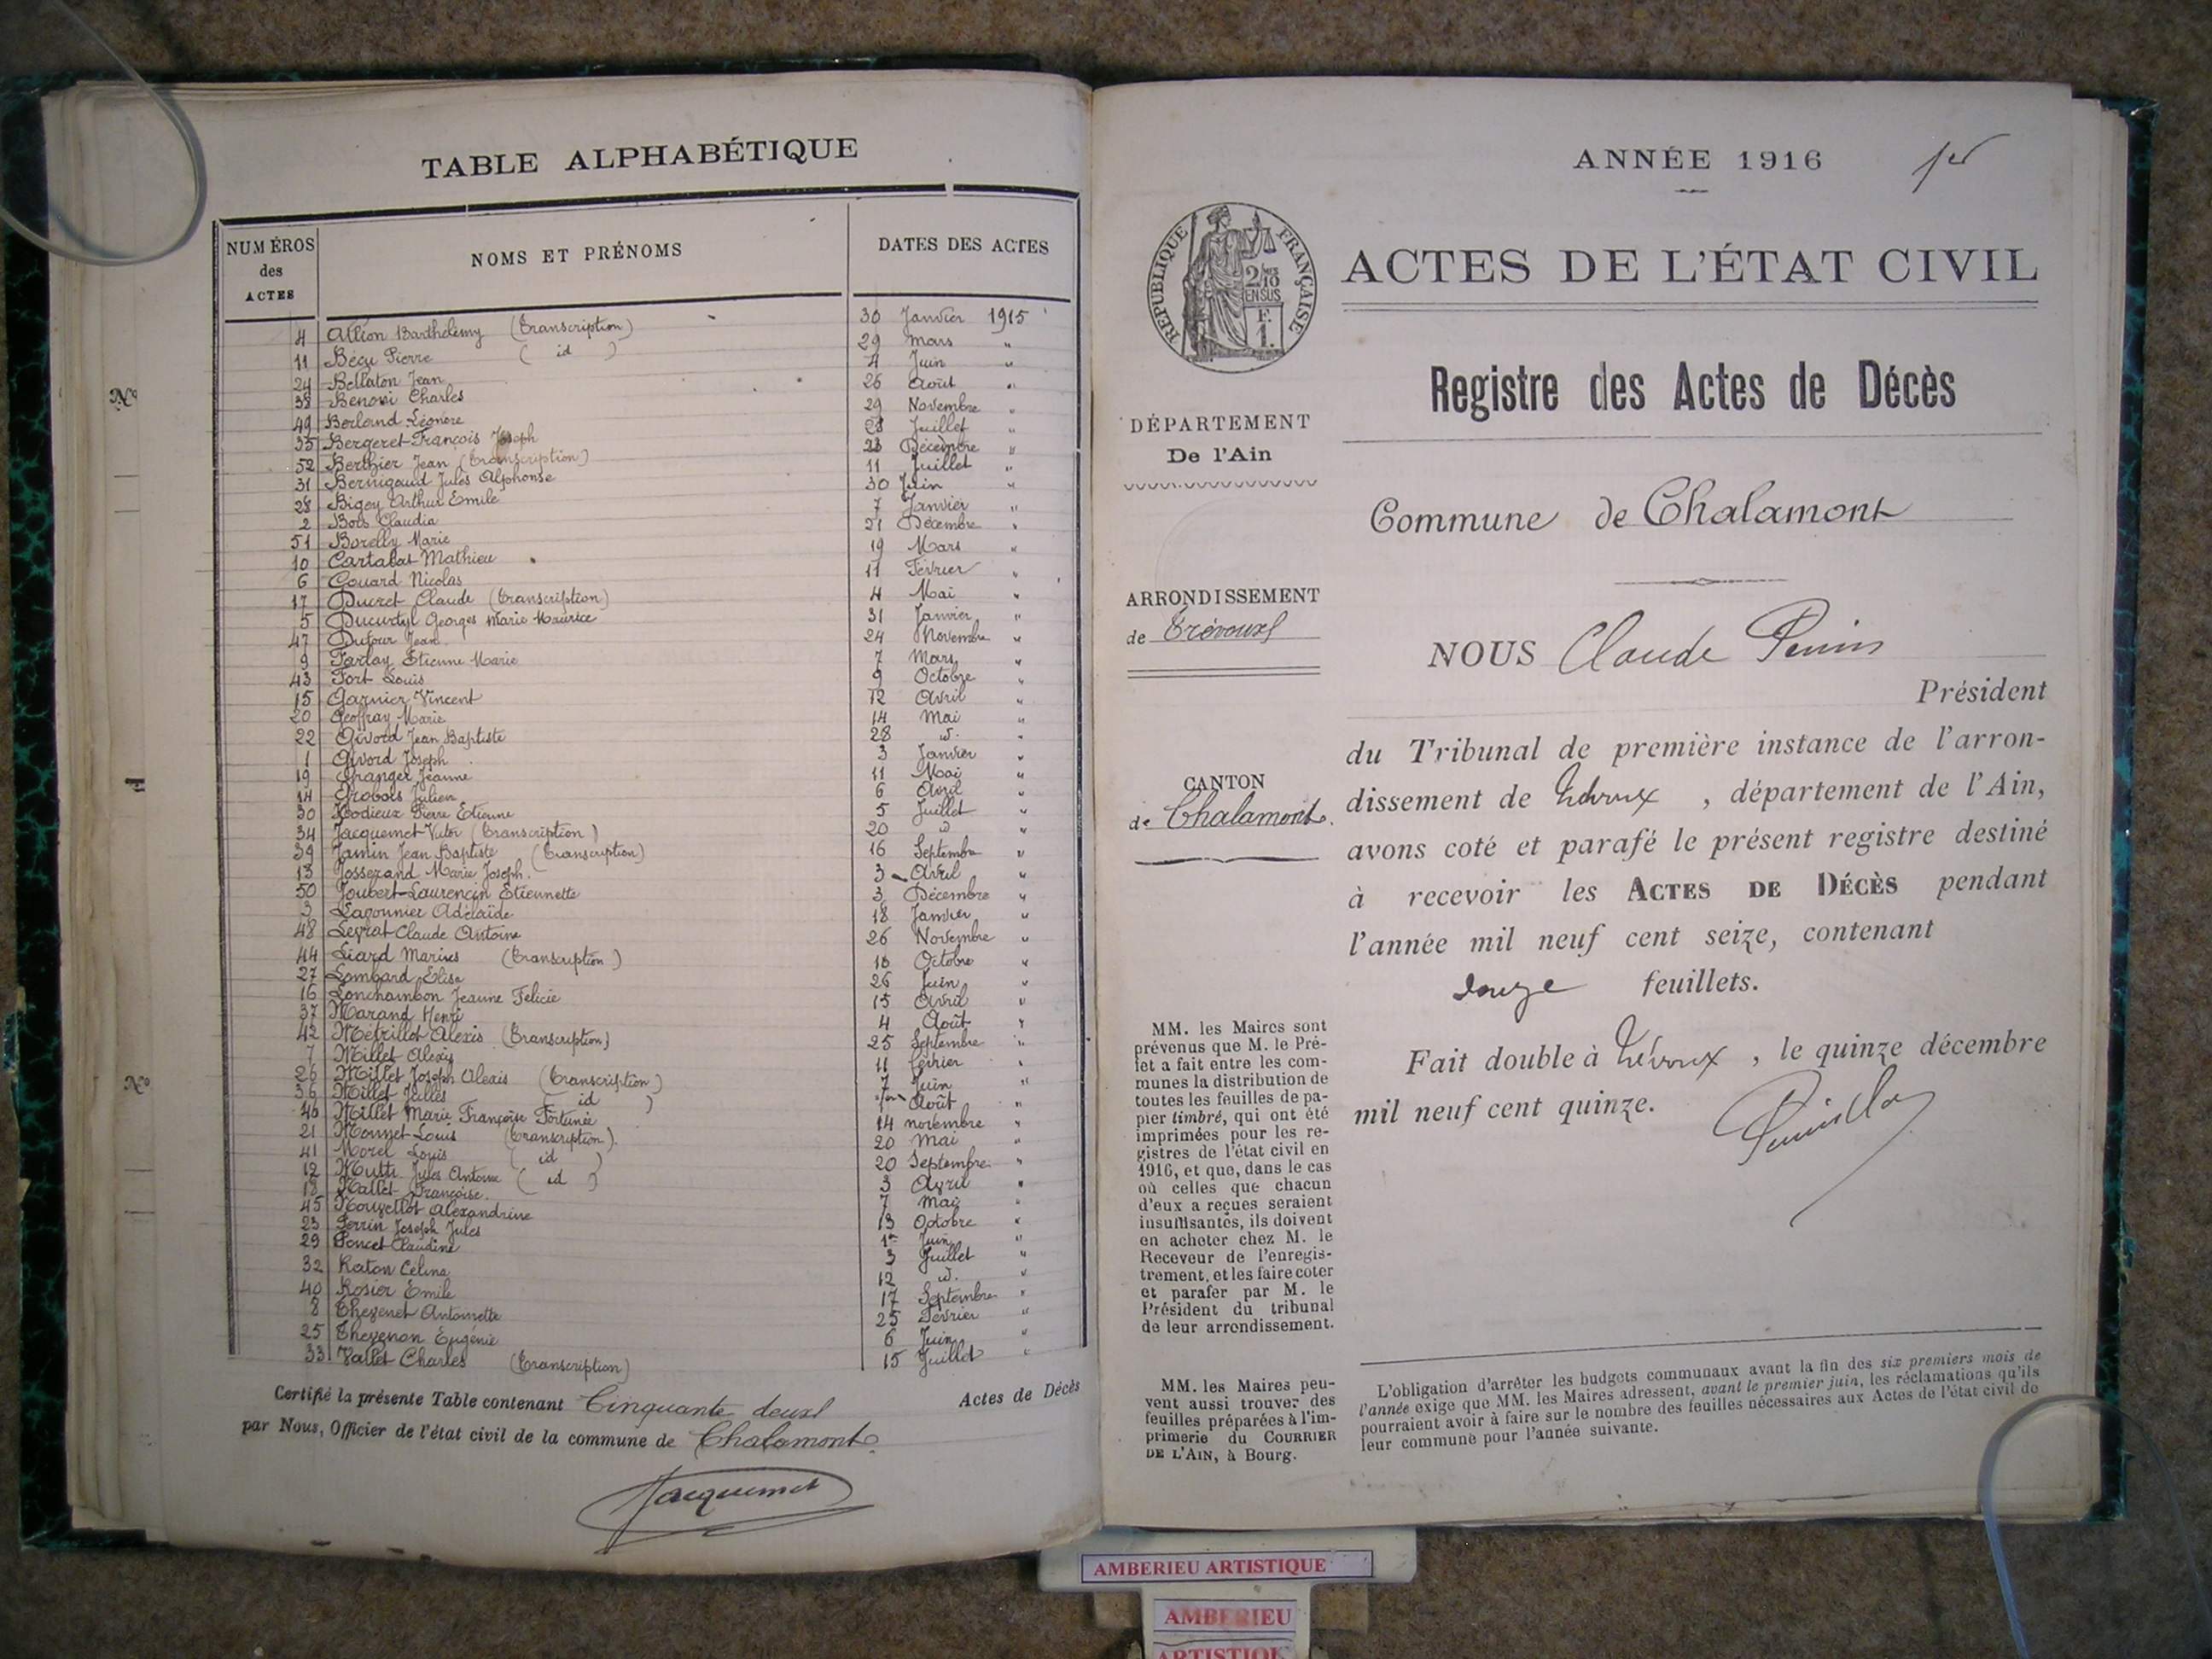 TABLE ALPHABÉTIQUE
NUMÉROS des ACTES
NOMS ET PRÉNOMS
DATES DES ACTES
4 Allion Barthélémy (transcription) 30 Janvier 1915
11 Bécu Pierre ( id ) 29 Mars "
24 Bellaton Jean 4 Juin "
38 Charles 26 Août "
49 Berland Léonore 29 Novembre "
35 Bergeret François Joseph 28 Juillet "
52 Berthier Jean (transcription) 23 Décembre "
31 Bernigaud Jules Alphonse 11 Juillet "
28 Bigey Arthur Emile 30 Juin "
2 Bois Claudia 7 Janvier "
51 Borelly Marie 21 Décembre "
10 Cartabas Mathieu 19 Mars "
6 Couard Nicolas 11 Février "
17 Ducret Claude (transcription) 4 Mai "
5 Georges Marie Maurice 31 Janvier "
47 Dufour Jean 24 Novembre "
9 Farlay Etienne Marie 7 Mars "
43 Fort Louis 9 Octobre "
15 Garnier Vincent 12 Avril "
20 Geoffray Marie 14 Mai "
22 Givord Jean Baptiste 28 d. "
1 Givord Joseph 3 Janvier "
19 Granger Jeanne 11 Mai "
14 Grobois Julien 6 Avril "
30 Hodieux Pierre Etienne 5 Juillet "
34 Jacquemet Victor (transcription) 20 d "
39 Jamin Jean Baptiste (transcription) 16 Septembre "
13 Josserand Marie Joseph. 3 Avril "
50 Joubert-Laurencin Etiennette 3 Décembre "
3 Lagounier Adélaïde 18 Janvier "
48 Legrat Claude Antoine 26 Novembre "
44 Liard Marius (transcription) 18 Octobre "
27 Lombard Elisa 26 Juin "
16 Lonchambon Jeanne Félicie 15 Avril "
37 Marand Henri 4 Août "
42 Métrillot Alexis (transcription) 25 Septembre "
7 Millet Alexis 11 février "
26 Millet Joseph Alexis (transcription) 7 Juin "
36 Millet Jules ( id ) 1er Août "
46 Millet Marie Françoise Fortunée 14 novembre "
21 Monnet Louis (transcription). 20 Mai "
41 Morel Louis ( id ) 20 Septembre "
12 Mutti Jules Antoine ( id ) 3 Avril "
18 Nallet Françoise. 7 Mai "
45 Nouvellot Alexandrine 13 Octobre "
23 Perrin Joseph Jules 1er Juin "
29 Poncet Claudine 3 Juillet "
32 Raton Célina 12 d. "
40 Rosier Emile 17 Septembre "
8 Thevenet Antoinette 25 Février "
25 Thevenon Eugénie 6 Juin "
33 Vallet Charles (transcription) 15 Juillet "
Certifié la présente Table contenant Cinquante deux Actes de Décès
par Nous, Officier de l'état civil de la commune de Chalamont.
Jacquemet
No
No
ANNÉE 1916
1er
RÉPUBLIQUE FRANÇAISE
2/10 EN SUS
F. 1.
ACTES DE L'ÉTAT CIVIL
Registre des Actes de Décès
DÉPARTEMENT
De l'Ain
Commune de Chalamont
ARRONDISSEMENT
de Trévoux
CANTON
de Chalamont.
NOUS Claude Perrin
Président
du Tribunal de première instance de l'arron-
dissement de Trévoux, département de l'Ain,
avons coté et parafé le présent registre destiné
à recevoir les ACTES DE DÉCÈS pendant
l'année mil neuf cent seize, contenant
douze feuillets.
Fait double à Trévoux, le quinze décembre
mil neuf cent quinze.
MM. les Maires sont
prévenus que M. le Pré-
fet a fait entre les com-
munes la distribution de
toutes les feuilles de pa-
pier timbré, qui ont été
imprimées pour les re-
gistres de l'état civil en
1916, et que, dans le cas
où celles que chacun
d'eux a reçues seraient
insuffisantes, ils doivent
en acheter chez M. le
Receveur de l'enregis-
trement, et les faire coter
et parafer par M. le
Président du tribunal
de leur arrondissement.
MM. les Maires peu-
vent aussi trouver des
feuilles préparées à l'im-
primerie du COURRIER
DE L'AIN, à Bourg.
L'obligation d'arrêter les budgets communaux avant la fin des six premiers mois de
l'année exige que MM. les Maires adressent, avant le premier juin, les réclamations qu'ils
pourraient avoir à faire sur le nombre des feuilles nécessaires aux Actes de l'état civil de
leur commune pour l'année suivante.
AMBERIEU ARTISTIQUE
AMBERIEU
ARTISTIQUE